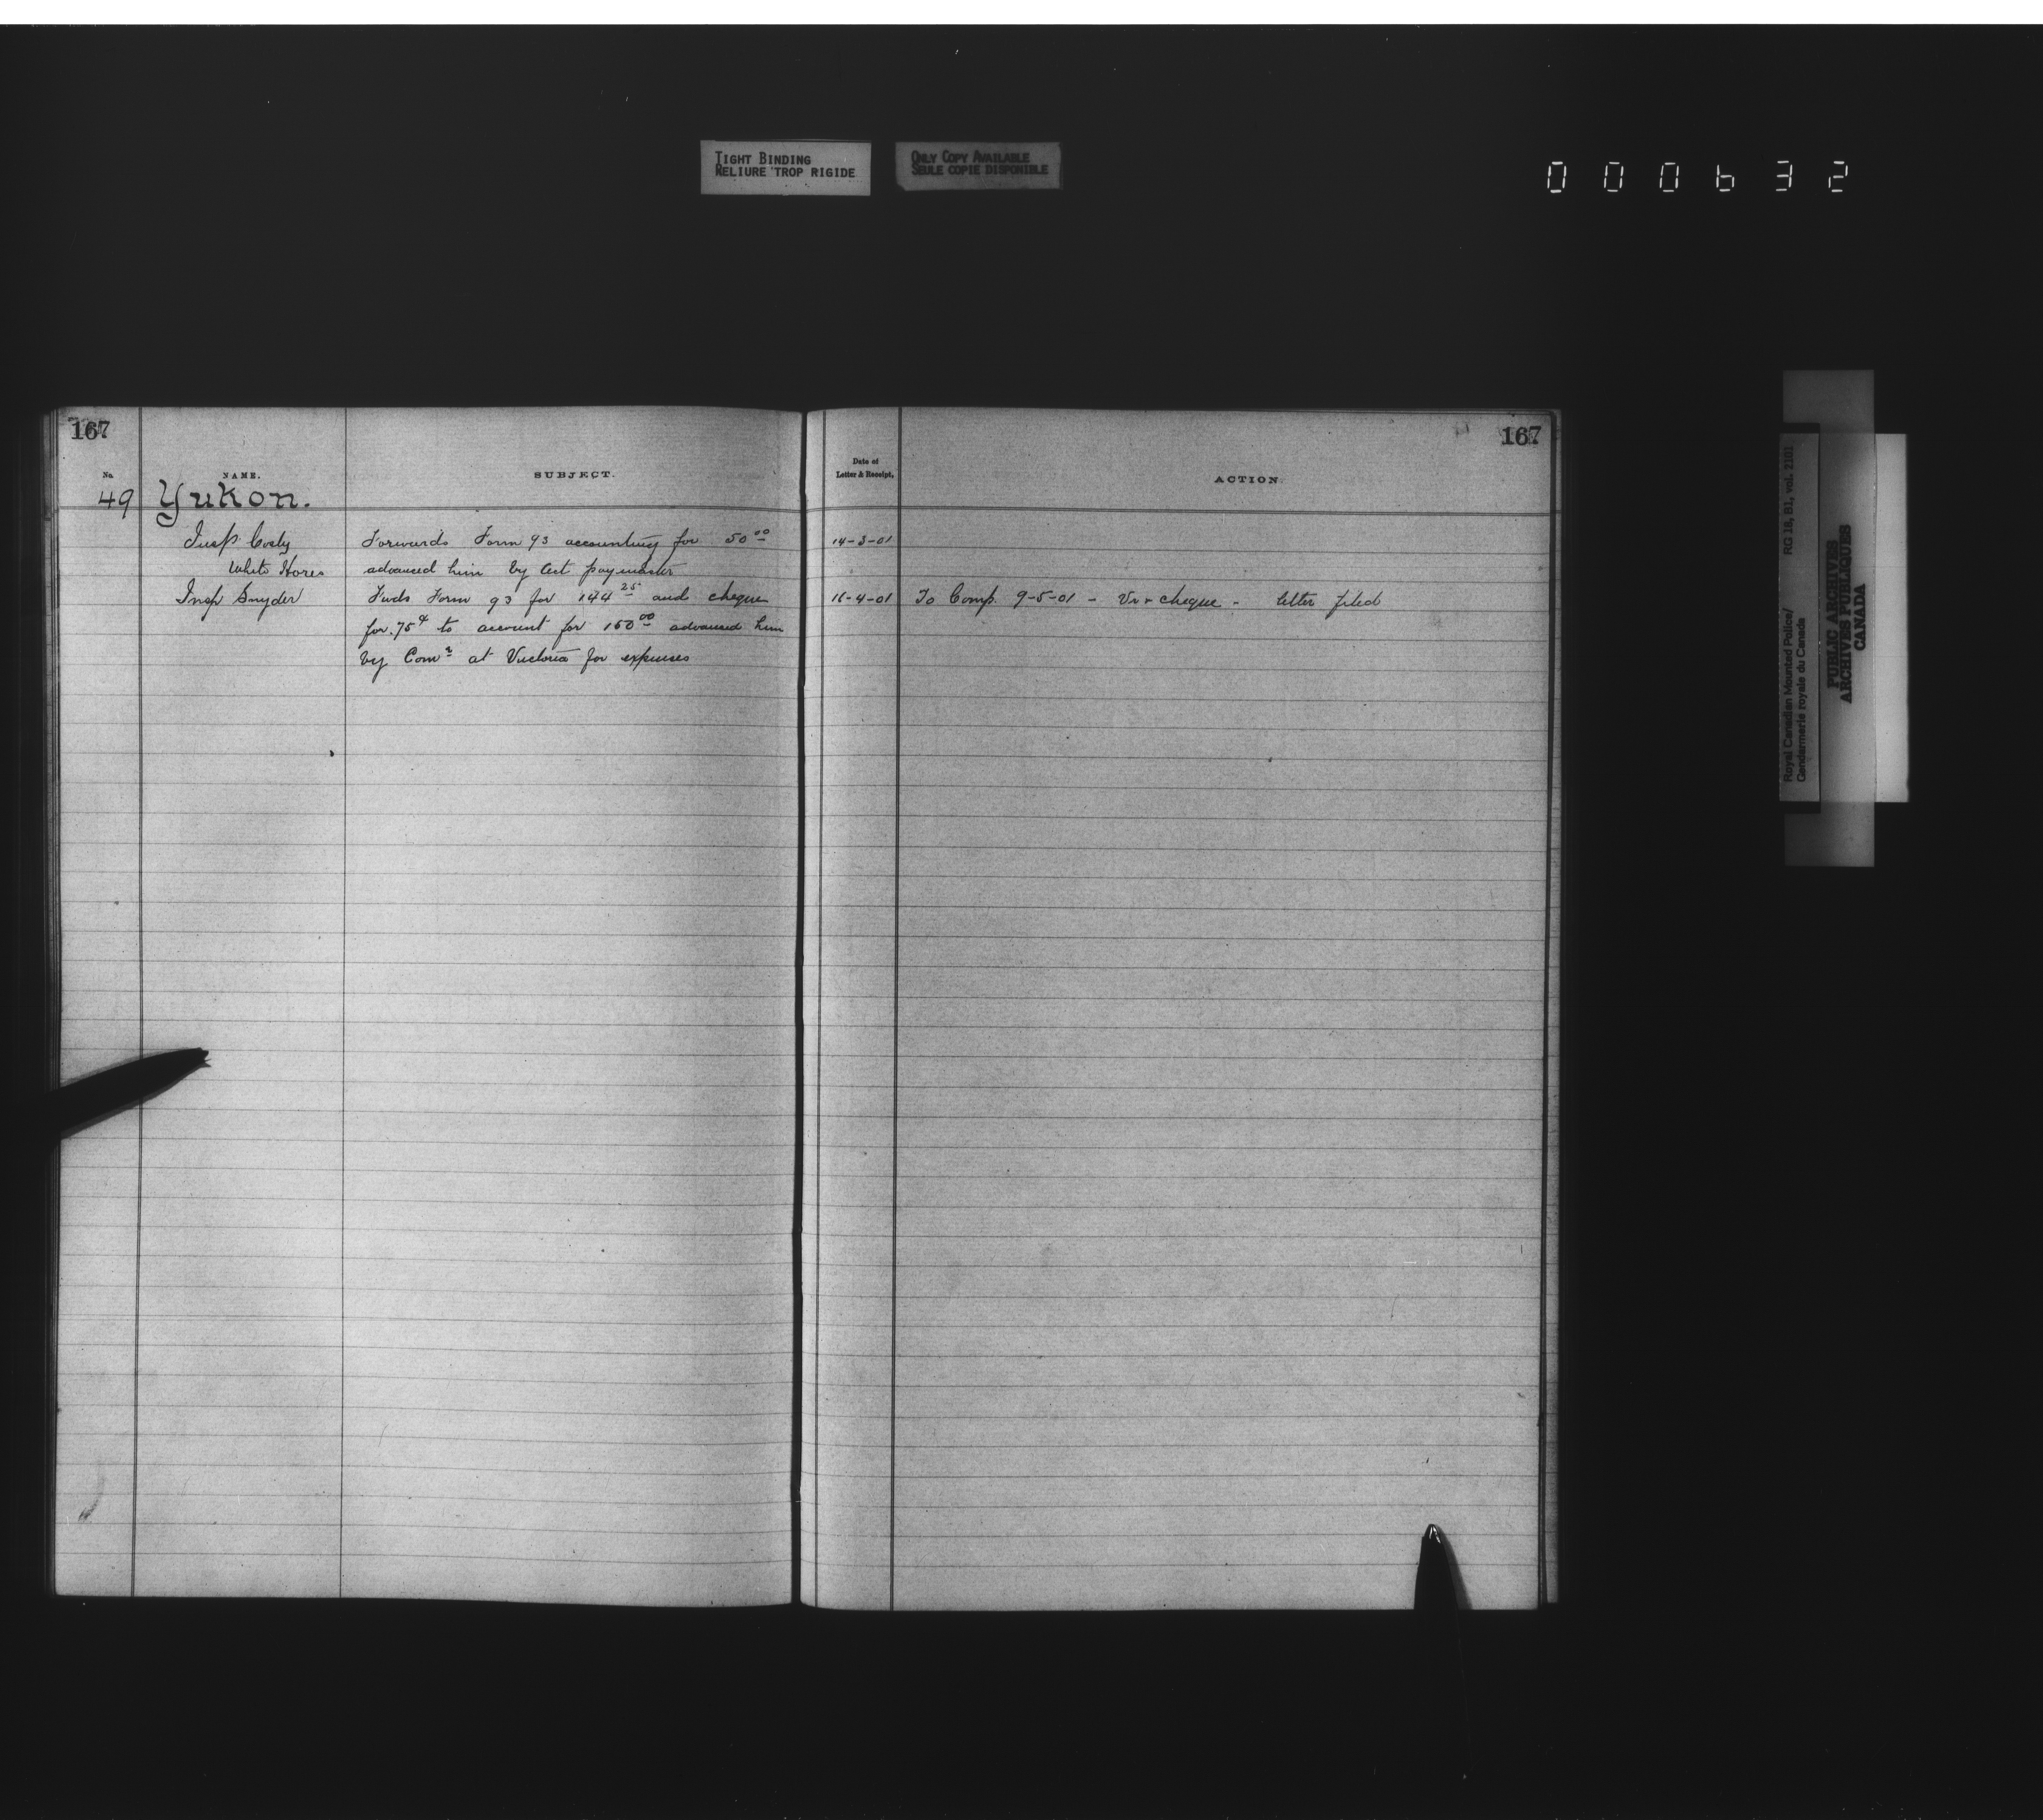 TIGHT BINDING
RELIURE TROP RIGIDE
ONLY COPY AVAILABLE
SEULE COPIE DISPONIBLE
000632
167
No
NAME.
SUBJECT.
49 Yukon.
Insp. Cosby Forwards Form 93 accounting for 50 00
White Horse advanced him by Act paymaster
Insp Snyder Fwds Form 93 for 144 25 and cheque
for .75¢ to account for 150 00 advanced him
by Comr at Victoria for expenses
167
Date of
Letter & Receipt.
ACTION.
14-3-01
16-4-01 To Comp. 9-5-01 - Vr & cheque - letter filed
Royal Canadian Mounted Police/ RG 18, B1, vol. 2101
Gendarmerie royale du Canada
PUBLIC ARCHIVES
ARCHIVES PUBLIQUES
CANADA